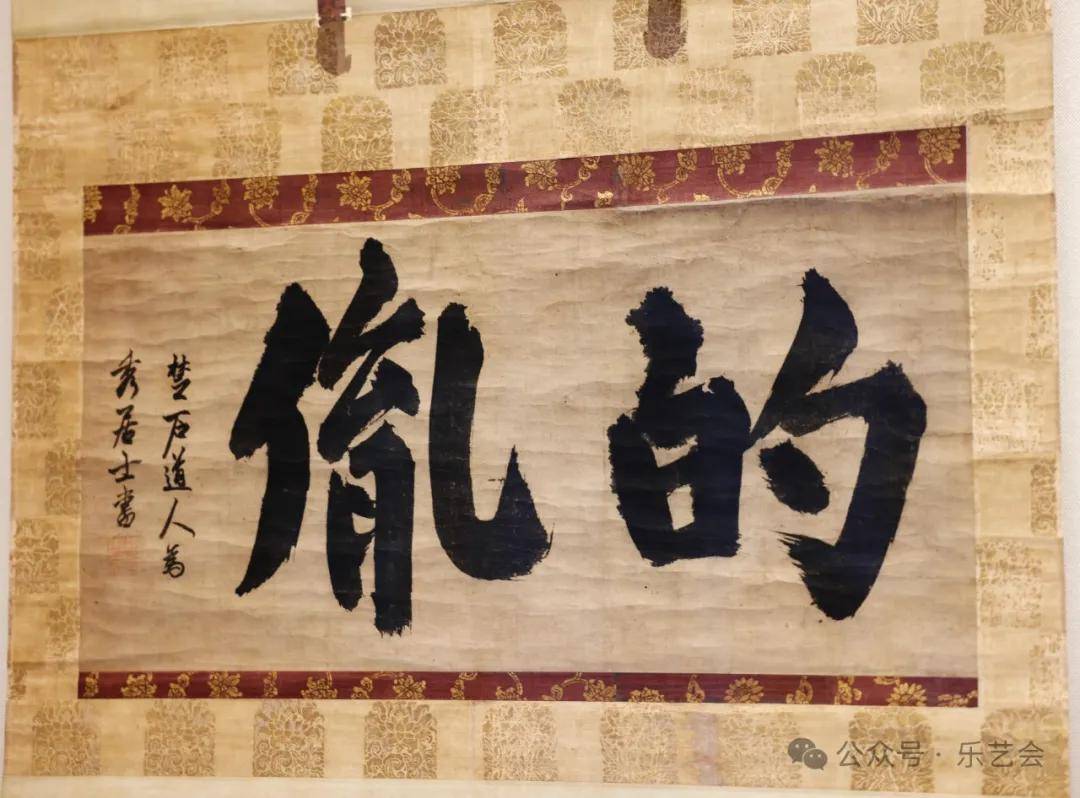 的胤
楚石道人為
秀居士書
公众号·乐艺会